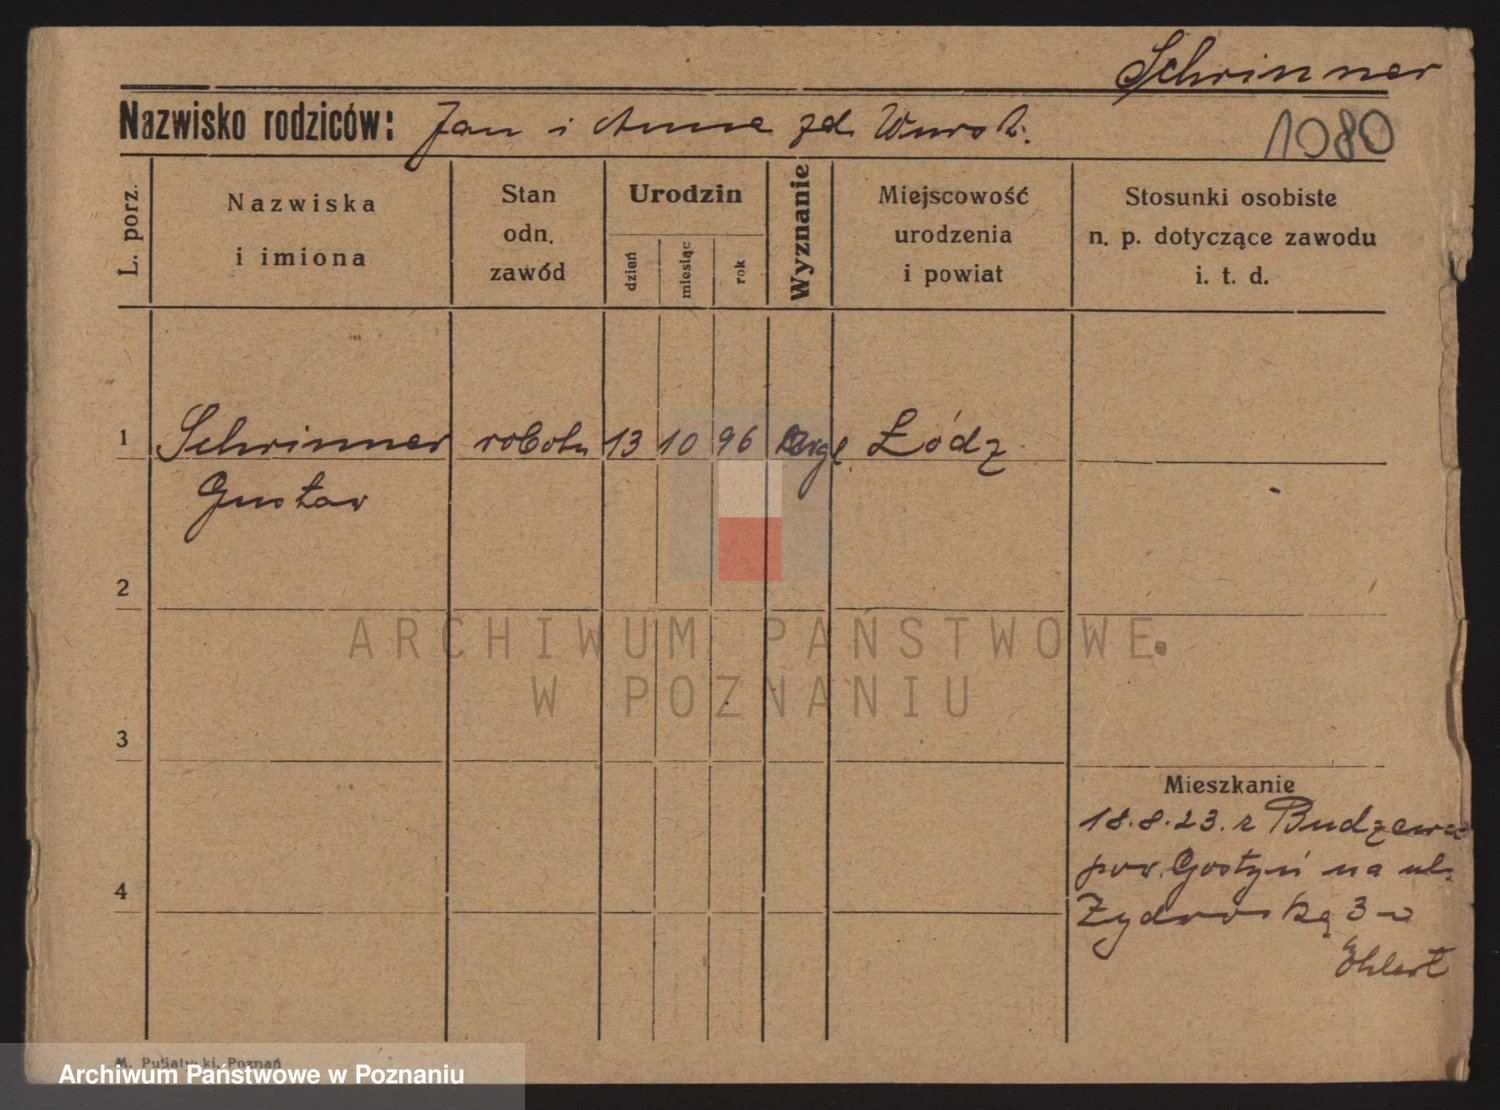 Schrinner
Nazwisko rodziców: Jan i Anna zd. Wurst.
1080
L. porz.
Nazwiska
i imiona
Stan
odn.
zawód
Urodzin
dzień
miesiąc
rok
Wyznanie
Miejscowość
urodzenia
i powiat
Stosunki osobiste
n. p. dotyczące zawodu
i. t. d.
1 Schrinner robotn 13 10 96 Łódz
Gustav
2
ARCHIWUM PAŃSTWOWE
W POZNANIU
3
Mieszkanie
18.8.23. z
pow. Gostyń na ul.
Żydowską 3
4
Ehlert
M. Putiatycki, Poznań
Archiwum Państwowe w Poznaniu